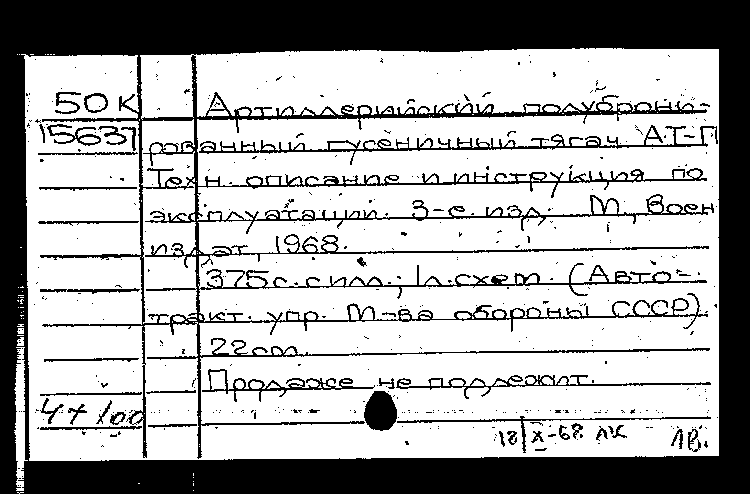 50 К
15637
Артиллерийский полуброни-
рованный гусеничный тягач АТ-П
Техн. описание и инструкция по
эксплуатации. 3-е изд. М., Воен
издат, 1968.
375 с. с илл.; 1 л. схем. (Авто-
тракт. упр. М-ва обороны СССР).
22 см.
Продаже не подлежит.
18/X-68 ЛК 1В.